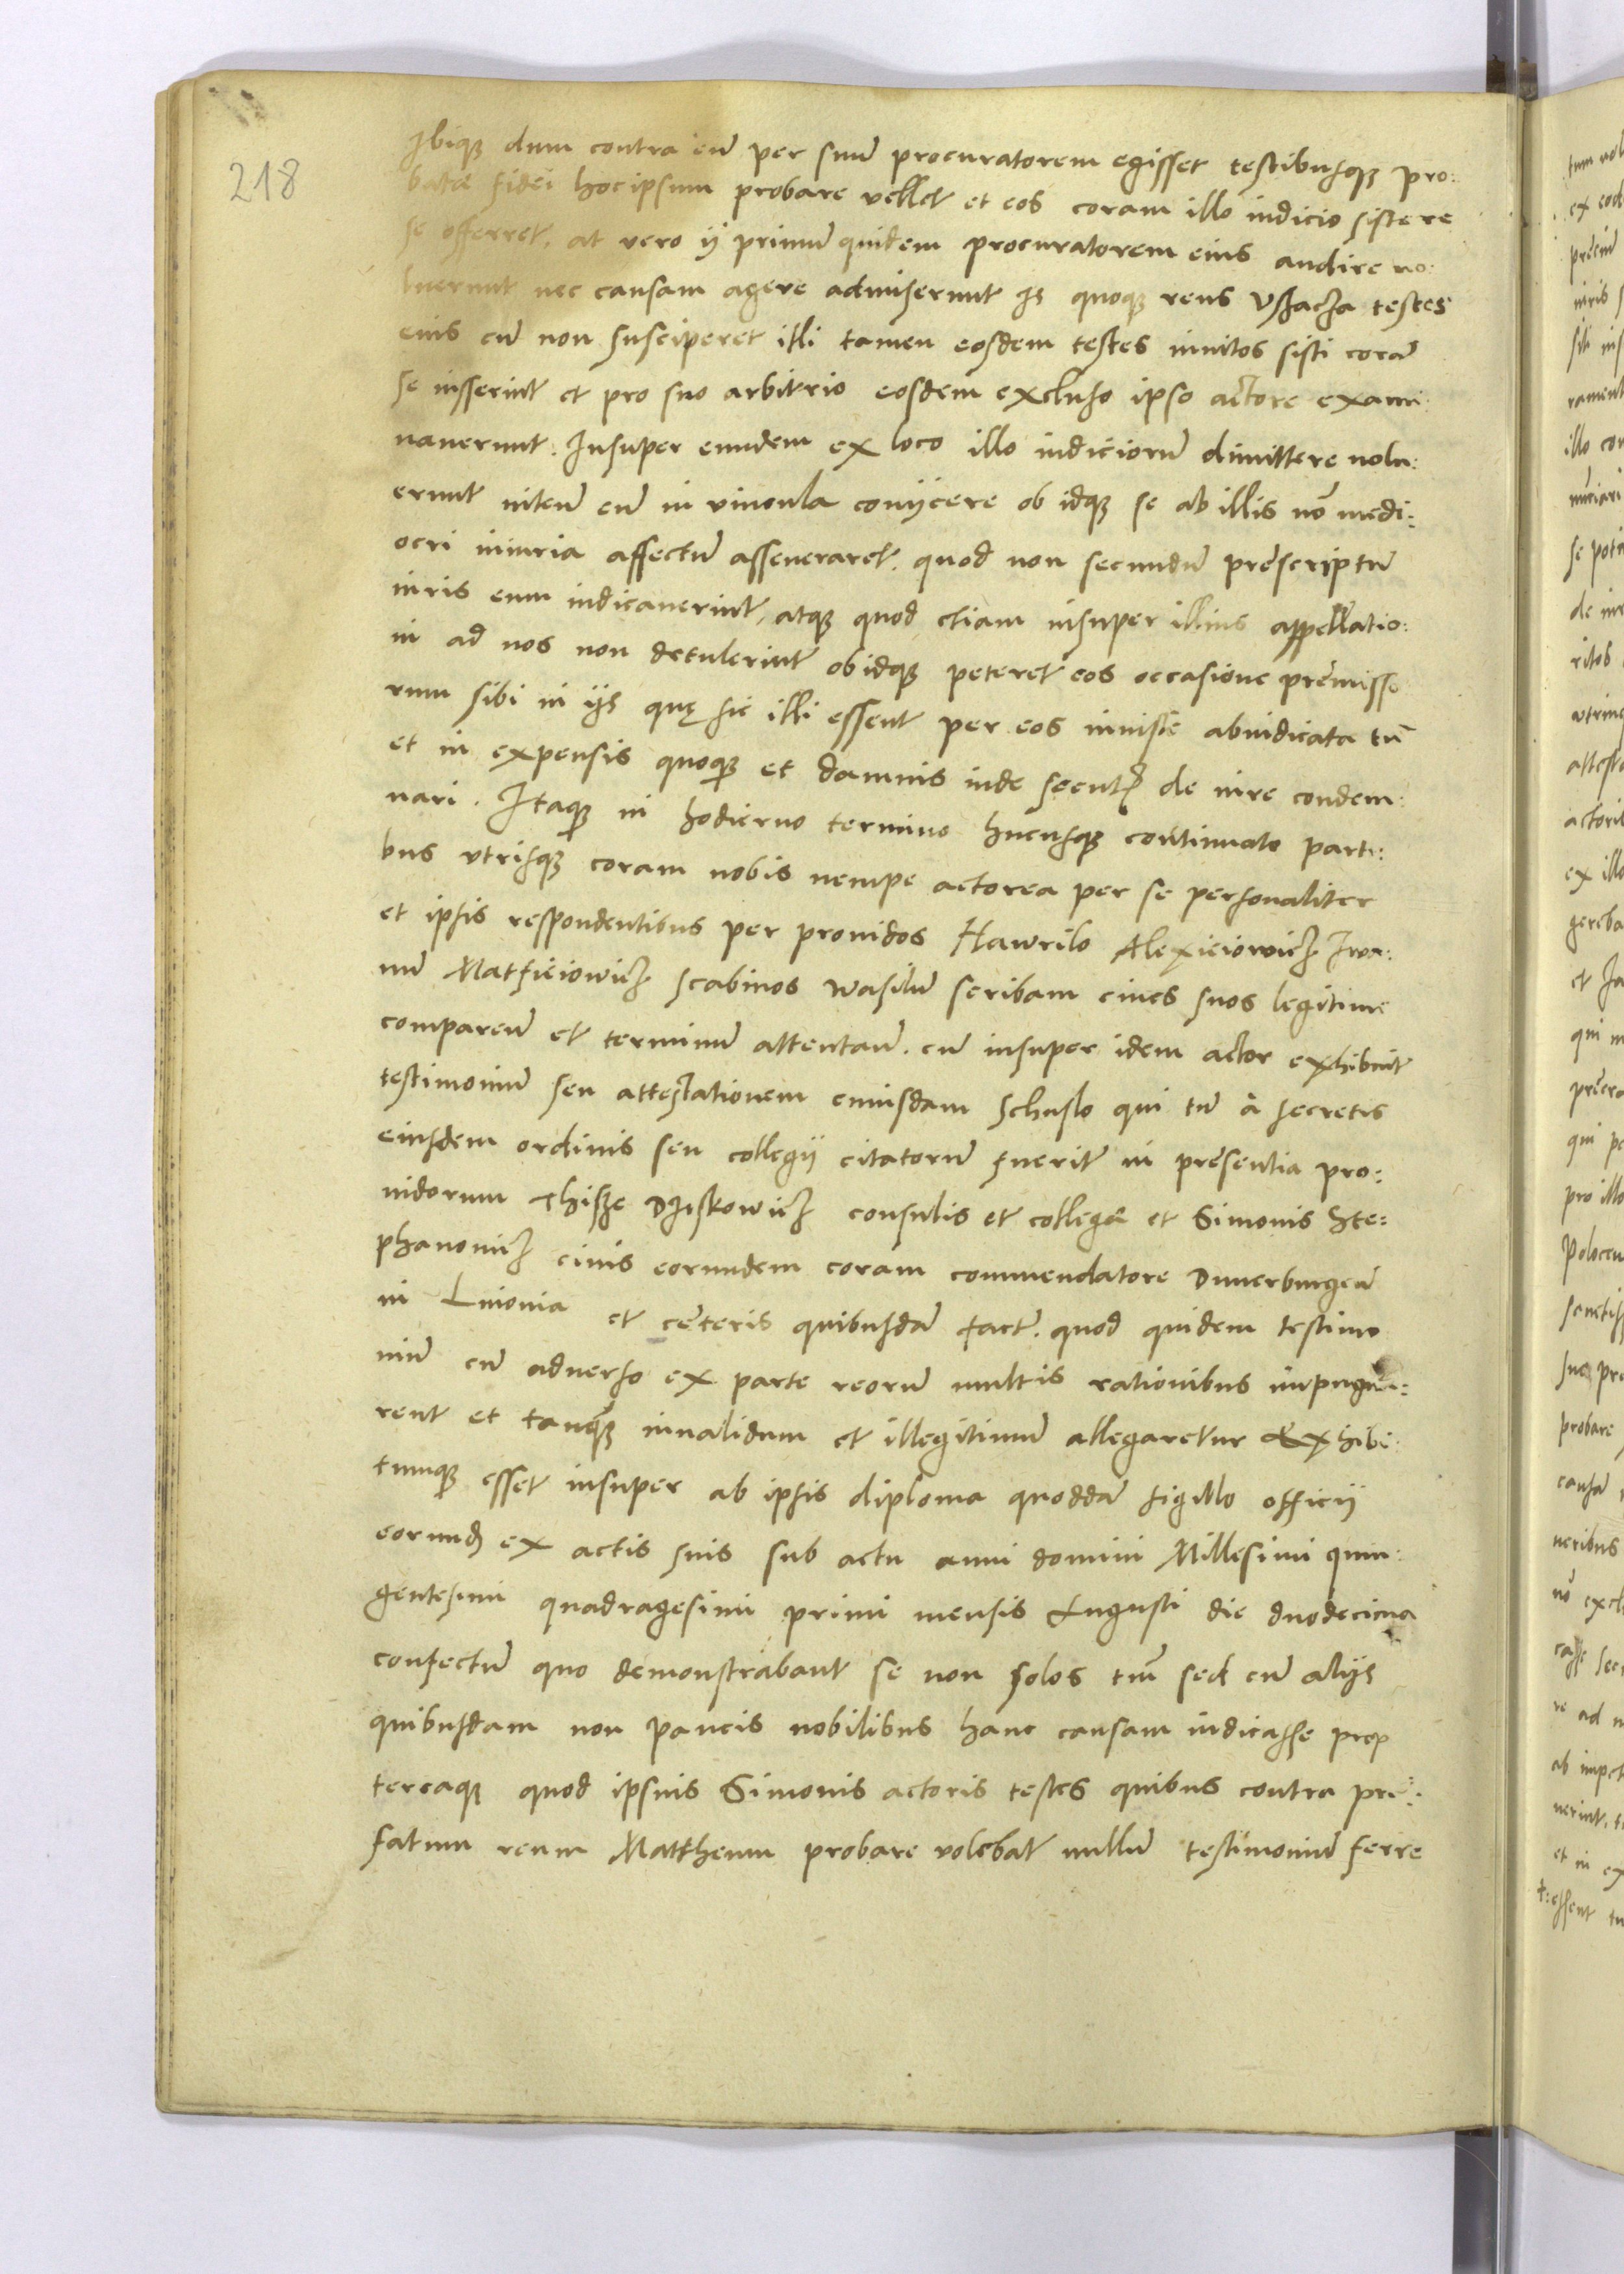 218
Ibiq dum contra eu per suu procuratorem egisset testibusq pro:
bate fidei hoc ipsum probare vellet et eos coram illo iudicio sistere
se offerret, at vero ij primu quidem procuratorem eius audire no:
luerunt nec causam agere admiserunt Is quoq reus Ushacza testes
eius cu non susciperet illi tamen eosdem testes inuitos sisti cora
se iusserint et pro suo arbitrio eosdem excluso ipso actore exami:
nauerunt. Insuper eundem ex loco illo iudicioru dimittere nolu:
erunt eu in vincula conijcere ob idq se ab illis no medi:
ocri iniuria affectu asseueraret. quod non secundu prescriptu
iuris eum iudicauerint, atq quod etiam insuper illius appellatio:
ni ad nos non detulerint ob idq peteret eos occasione premisso
rum sibi in ijs quę sic illi essent per eos iniuste abiudicata tu
et in expensis quoq et damnis inde secut de iure condem:
nari. Itaq in hodierno termino hucusq continuato parti:
bus vtrisq coram nobis nempe actorea per se personaliter
et ipsis respondentibus per prouidos Hawrilo Alexieiowicz Iwa:
nu Matfieiowicz scabinos Wasilu scribam ciues suos legitime
compareu et terminu attentau. cu insuper idem actor exhibuit
testimoniu seu attestationem cuiusdam Schuslo qui tu à secretis
eiusdem ordinis seu collegij citatoru fuerit in presentia pro:
uidorum consulis et collegæ et Simonis Ste:
phanowicz ciuis eorundem coram commendatore Dunerburgeñ
in Liuonia et ceteris quibusda fact. quod quidem testimo
niu cu aduerso ex parte reoru multis rationibus impugna:
rent et tanq inualidum et illegitimu allegaretur Exhibi:
tumq esset insuper ab ipsis diploma quodda sigillo officij
eorund ex actis suis sub actu anni domini Millesimi quin:
gentesimi quadragesimi primi mensis Augusti die duodecima
confectu quo demonstrabant se non solos tm sed cu alijs
quibusdam non paucis nobilibus hanc causam iudicasse prop
tereaq quod ipsius Simonis actoris testes quibus contra pre:
fatum reum Mattheum probare volebat nullu testimoniu ferre